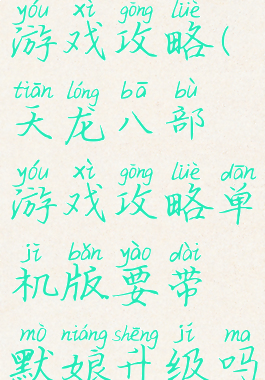 yóu xì gōng lüè
游戏攻略(
tiān lóng bā bù
天龙八部
yóu xì gōng lüè dān
游戏攻略单
jī bǎn yào dài
机版要带
mò niáng shēng jí ma
默娘升级吗